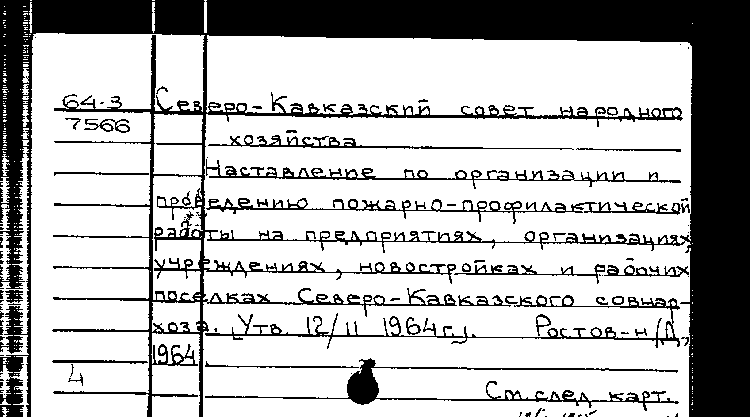 64-3 Северо-Кавказский совет народного
7566
хозяйства
Наставление по организации и
проведению пожарно-профилактической
работы на предприятиях, организациях,
учреждениях, новостройках и рабочих
поселках Северо-Кавказского совнар-
хоза. [Утв. 12/II 1964г.]. Ростов-н/Д,
1964
4
См. след. карт.